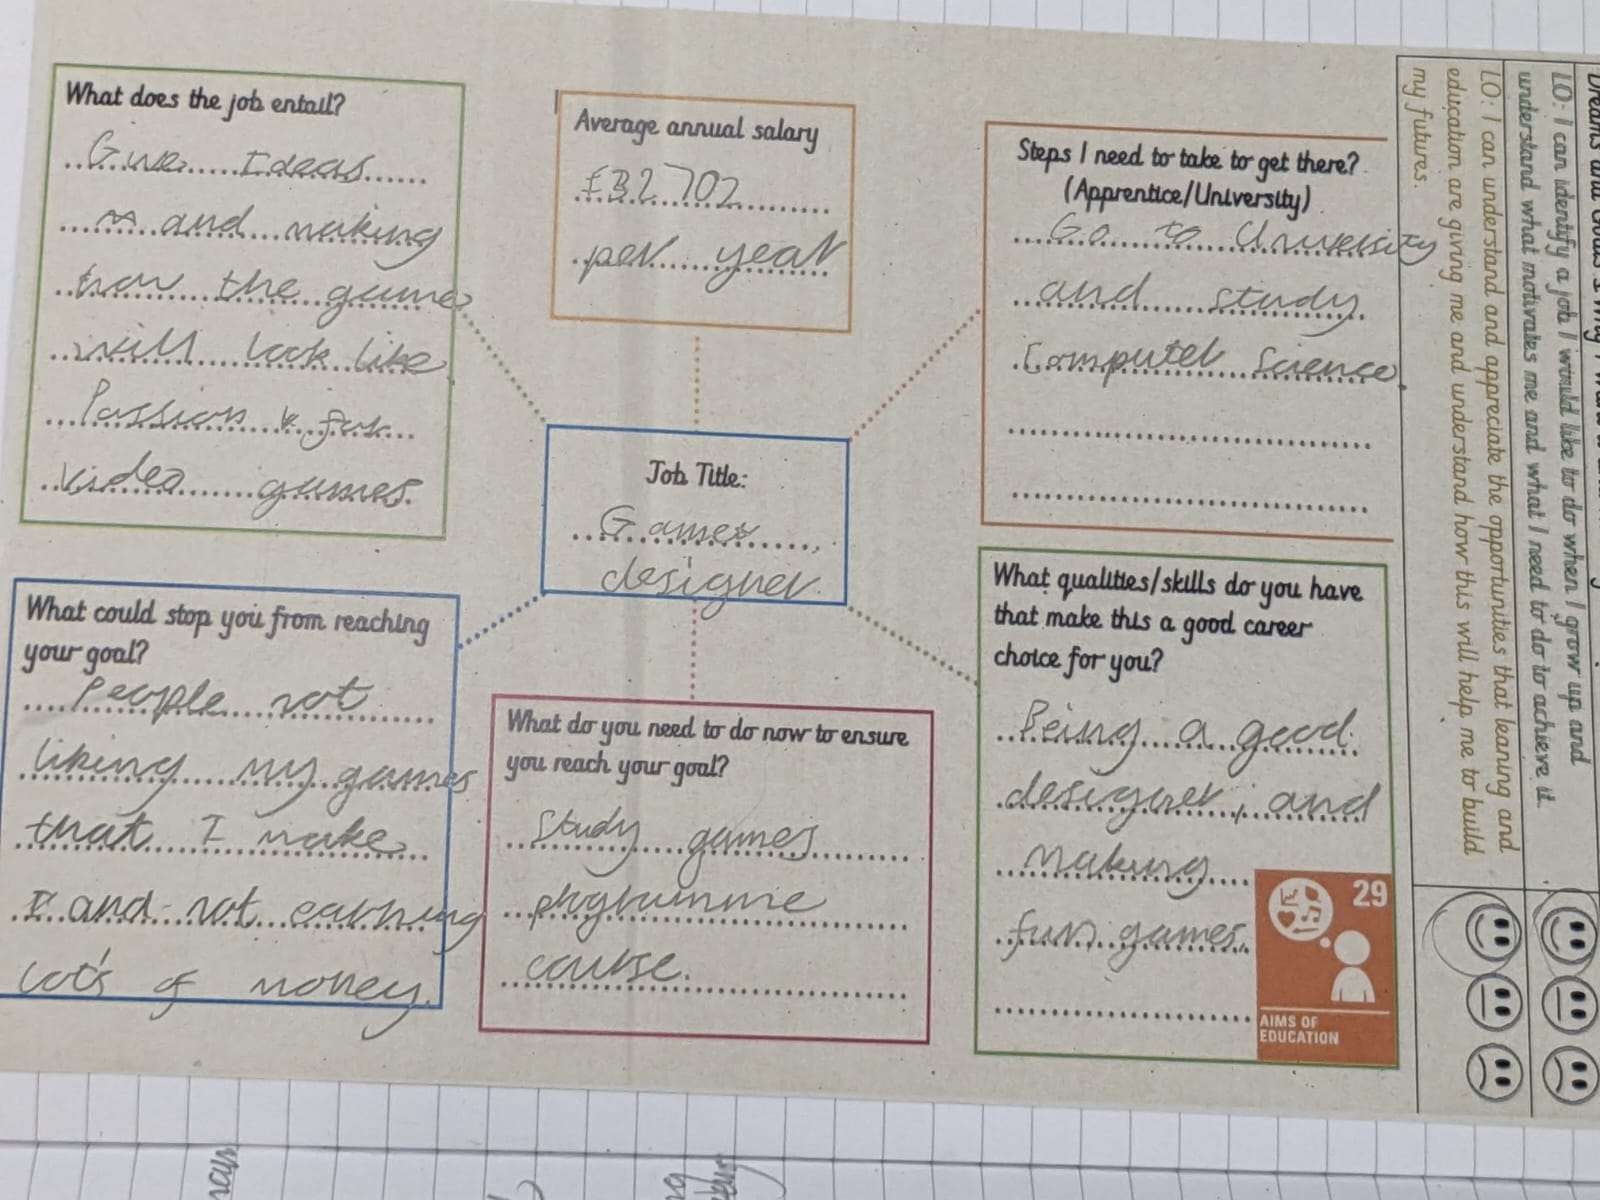 What does the job entail?
Give Ideas
and making
how the games
will look like
Passion for
video games.
Average annual salary
£32 702
per year
Steps I need to take to get there?
(Apprentice/University)
Go to University
and study
Computer Science.
Job Title:
Games
designer.
What could stop you from reaching
your goal?
People not
liking my games
that I make
and not earning
lot's of money.
What do you need to do now to ensure
you reach your goal?
Study games
programme
course.
What qualities/skills do you have
that make this a good career
choice for you?
Being a good
designer, and
making
fun games.
29
AIMS OF
EDUCATION
LO: I can identify a job I would like to do when I grow up and
understand what motivates me and what I need to do to achieve it.
LO: I can understand and appreciate the opportunities that learning and
education are giving me and understand how this will help me to build
my futures.